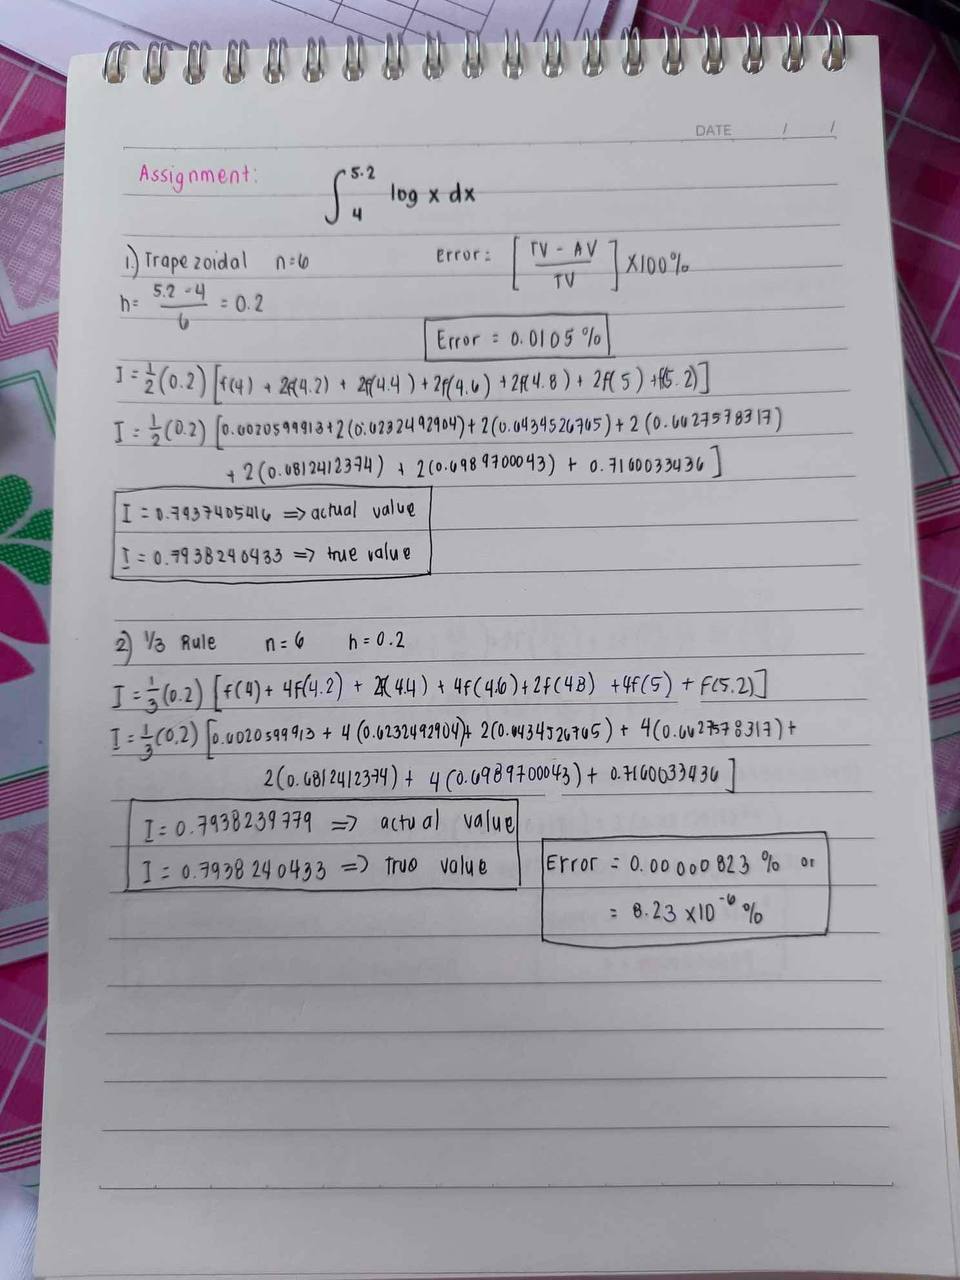 DATE / /
Assignment:
∫₄^5.2 log x dx
1.) Trapezoidal n=6
Error: [TV - AV / TV] x100%
h= 5.2 - 4 / 6 = 0.2
Error = 0.0105 %
I = 1/2 (0.2) [f(4) + 2f(4.2) + 2f(4.4) + 2f(4.6) + 2f(4.8) + 2f(5) + f(5.2)]
I = 1/2 (0.2) [0.6020599913 + 2(0.6232492904) + 2(0.6434526765) + 2(0.6627578317)
+ 2(0.6812412374) + 2(0.6989700043) + 0.7160033436]
I = 0.7937405416 => actual value
I = 0.7938240433 => true value
2) 1/3 Rule n=6 h=0.2
I = 1/3 (0.2) [f(4) + 4f(4.2) + 2f(4.4) + 4f(4.6) + 2f(4.8) + 4f(5) + f(5.2)]
I = 1/3 (0.2) [0.6020599913 + 4(0.6232492904) + 2(0.6434526765) + 4(0.6627578317) +
2(0.6812412374) + 4(0.6989700043) + 0.7160033436]
I = 0.7938239779 => actual value
I = 0.7938240433 => true value
Error = 0.00000823 % or
= 8.23 x10^-6 %